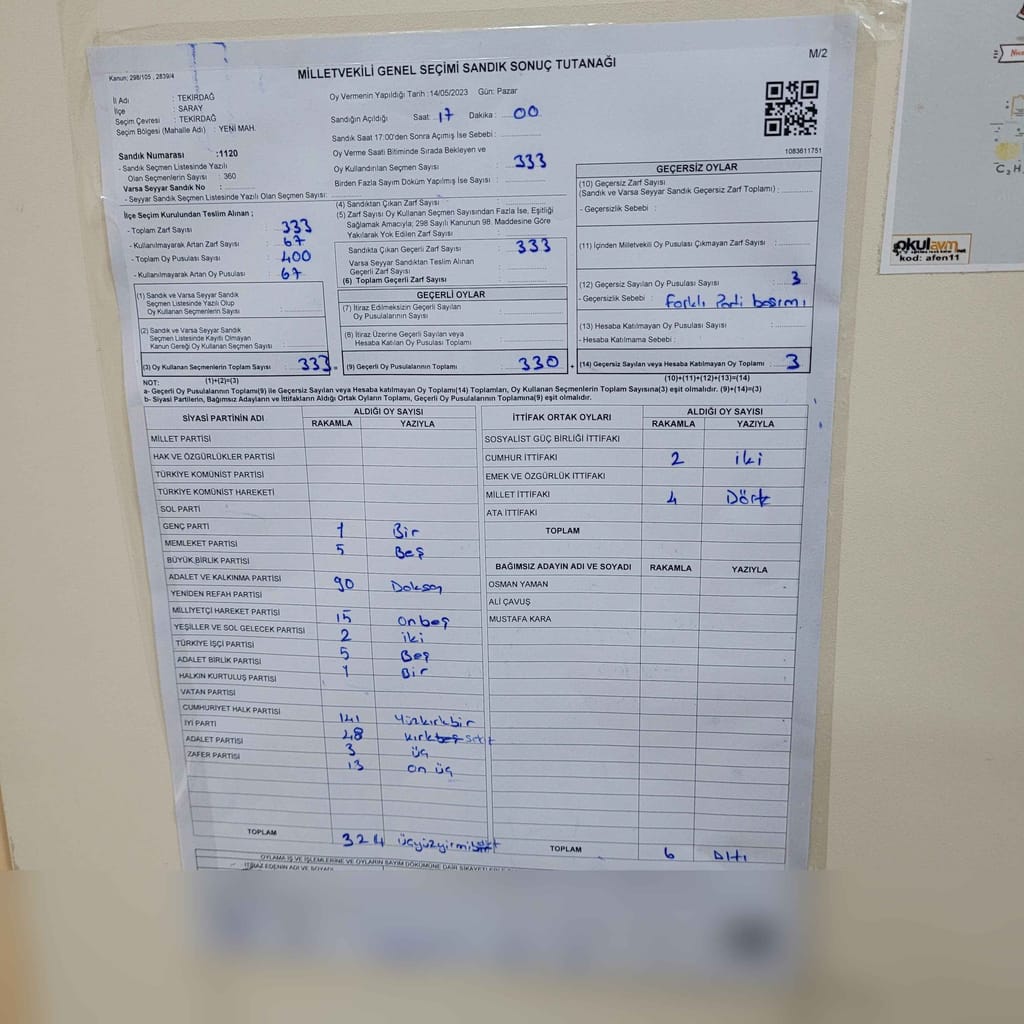 Kanun; 298/105 , 2839/4
MİLLETVEKİLİ GENEL SEÇİMİ SANDIK SONUÇ TUTANAĞI
M/2
İl Adı : TEKİRDAĞ
İlçe : SARAY
Seçim Çevresi : TEKİRDAĞ
Seçim Bölgesi (Mahalle Adı) : YENİ MAH.
Oy Vermenin Yapıldığı Tarih :14/05/2023 Gün: Pazar
Sandığın Açıldığı Saat: 17 Dakika : 00
Sandık Saat 17:00'den Sonra Açımış İse Sebebi :
Oy Verme Saati Bitiminde Sırada Bekleyen ve
Oy Kullandırılan Seçmen Sayısı : 333
Birden Fazla Sayım Döküm Yapılmış İse Sayısı :
1083611751
Sandık Numarası :1120
- Sandık Seçmen Listesinde Yazılı
Olan Seçmenlerin Sayısı : 360
Varsa Seyyar Sandık No :
- Seyyar Sandık Seçmen Listesinde Yazılı Olan Seçmen Sayısı:
İlçe Seçim Kurulundan Teslim Alınan ;
- Toplam Zarf Sayısı : 333
- Kullanılmayarak Artan Zarf Sayısı : 67
- Toplam Oy Pusulası Sayısı : 400
- Kullanılmayarak Artan Oy Pusulası : 67
(1) Sandık ve Varsa Seyyar Sandık
Seçmen Listesinde Yazılı Olup
Oy Kullanan Seçmenlerin Sayısı :
(2) Sandık ve Varsa Seyyar Sandık
Seçmen Listesinde Kayıtlı Olmayan
Kanun Gereği Oy Kullanan Seçmen Sayısı :
(3) Oy Kullanan Seçmenlerin Toplam Sayısı : 333 =
(1)+(2)=(3)
(4) Sandıktan Çıkan Zarf Sayısı :
(5) Zarf Sayısı Oy Kullanan Seçmen Sayısından Fazla İse, Eşitliği
Sağlamak Amacıyla; 298 Sayılı Kanunun 98. Maddesine Göre
Yakılarak Yok Edilen Zarf Sayısı :
Sandıkta Çıkan Geçerli Zarf Sayısı : 333
Varsa Seyyar Sandıktan Teslim Alınan
Geçerli Zarf Sayısı :
(6) Toplam Geçerli Zarf Sayısı :
GEÇERLİ OYLAR
(7) İtiraz Edilmeksizin Geçerli Sayılan
Oy Pusulalarının Sayısı :
(8) İtiraz Üzerine Geçerli Sayılan veya
Hesaba Katılan Oy Pusulası Toplamı :
(9) Geçerli Oy Pusulalarının Toplamı : 330 +
GEÇERSİZ OYLAR
(10) Geçersiz Zarf Sayısı
(Sandık ve Varsa Seyyar Sandık Geçersiz Zarf Toplamı) :
- Geçersizlik Sebebi :
(11) İçinden Milletvekili Oy Pusulası Çıkmayan Zarf Sayısı :
(12) Geçersiz Sayılan Oy Pusulası Sayısı : 3
- Geçersizlik Sebebi : farklı Parti basımı
(13) Hesaba Katılmayan Oy Pusulası Sayısı :
- Hesaba Katılmama Sebebi :
(14) Geçersiz Sayılan veya Hesaba Katılmayan Oy Toplamı : 3
(10)+(11)+(12)+(13)=(14)
NOT:
a- Geçerli Oy Pusulalarının Toplamı(9) ile Geçersiz Sayılan veya Hesaba katılmayan Oy Toplamı(14) Toplamları, Oy Kullanan Seçmenlerin Toplam Sayısına(3) eşit olmalıdır. (9)+(14)=(3)
b- Siyasi Partilerin, Bağımsız Adayların ve İttifakların Aldığı Ortak Oyların Toplamı, Geçerli Oy Pusulalarının Toplamına(9) eşit olmalıdır.
SİYASİ PARTİNİN ADI ALDIĞI OY SAYISI
RAKAMLA YAZIYLA
MİLLET PARTİSİ
HAK VE ÖZGÜRLÜKLER PARTİSİ
TÜRKİYE KOMÜNİST PARTİSİ
TÜRKİYE KOMÜNİST HAREKETİ
SOL PARTİ
GENÇ PARTİ 1 Bir
MEMLEKET PARTİSİ 5 Beş
BÜYÜK BİRLİK PARTİSİ
ADALET VE KALKINMA PARTİSİ 90 Doksan
YENİDEN REFAH PARTİSİ
MİLLİYETÇİ HAREKET PARTİSİ 15 on beş
YEŞİLLER VE SOL GELECEK PARTİSİ 2 iki
TÜRKİYE İŞÇİ PARTİSİ 5 Beş
ADALET BİRLİK PARTİSİ 1 Bir
HALKIN KURTULUŞ PARTİSİ
VATAN PARTİSİ
CUMHURİYET HALK PARTİSİ 141 Yüzkırkbir
İYİ PARTİ 48 kırkbeş sekiz
ADALET PARTİSİ 3 üç
ZAFER PARTİSİ 13 on üç
TOPLAM 324 üçyüzyirmi
İTTİFAK ORTAK OYLARI ALDIĞI OY SAYISI
RAKAMLA YAZIYLA
SOSYALİST GÜÇ BİRLİĞİ İTTİFAKI
CUMHUR İTTİFAKI 2 iki
EMEK VE ÖZGÜRLÜK İTTİFAKI
MİLLET İTTİFAKI 4 Dört
ATA İTTİFAKI
TOPLAM
BAĞIMSIZ ADAYIN ADI VE SOYADI RAKAMLA YAZIYLA
OSMAN YAMAN
ALİ ÇAVUŞ
MUSTAFA KARA
TOPLAM 6 Altı
OYLAMA İŞ VE İŞLEMLERİNE VE OYLARIN SAYIM DÖKÜMÜNE DAİR ŞİKAYETLER
İTİRAZ EDENİN ADI VE SOYADI
okulavm
kod: afen11